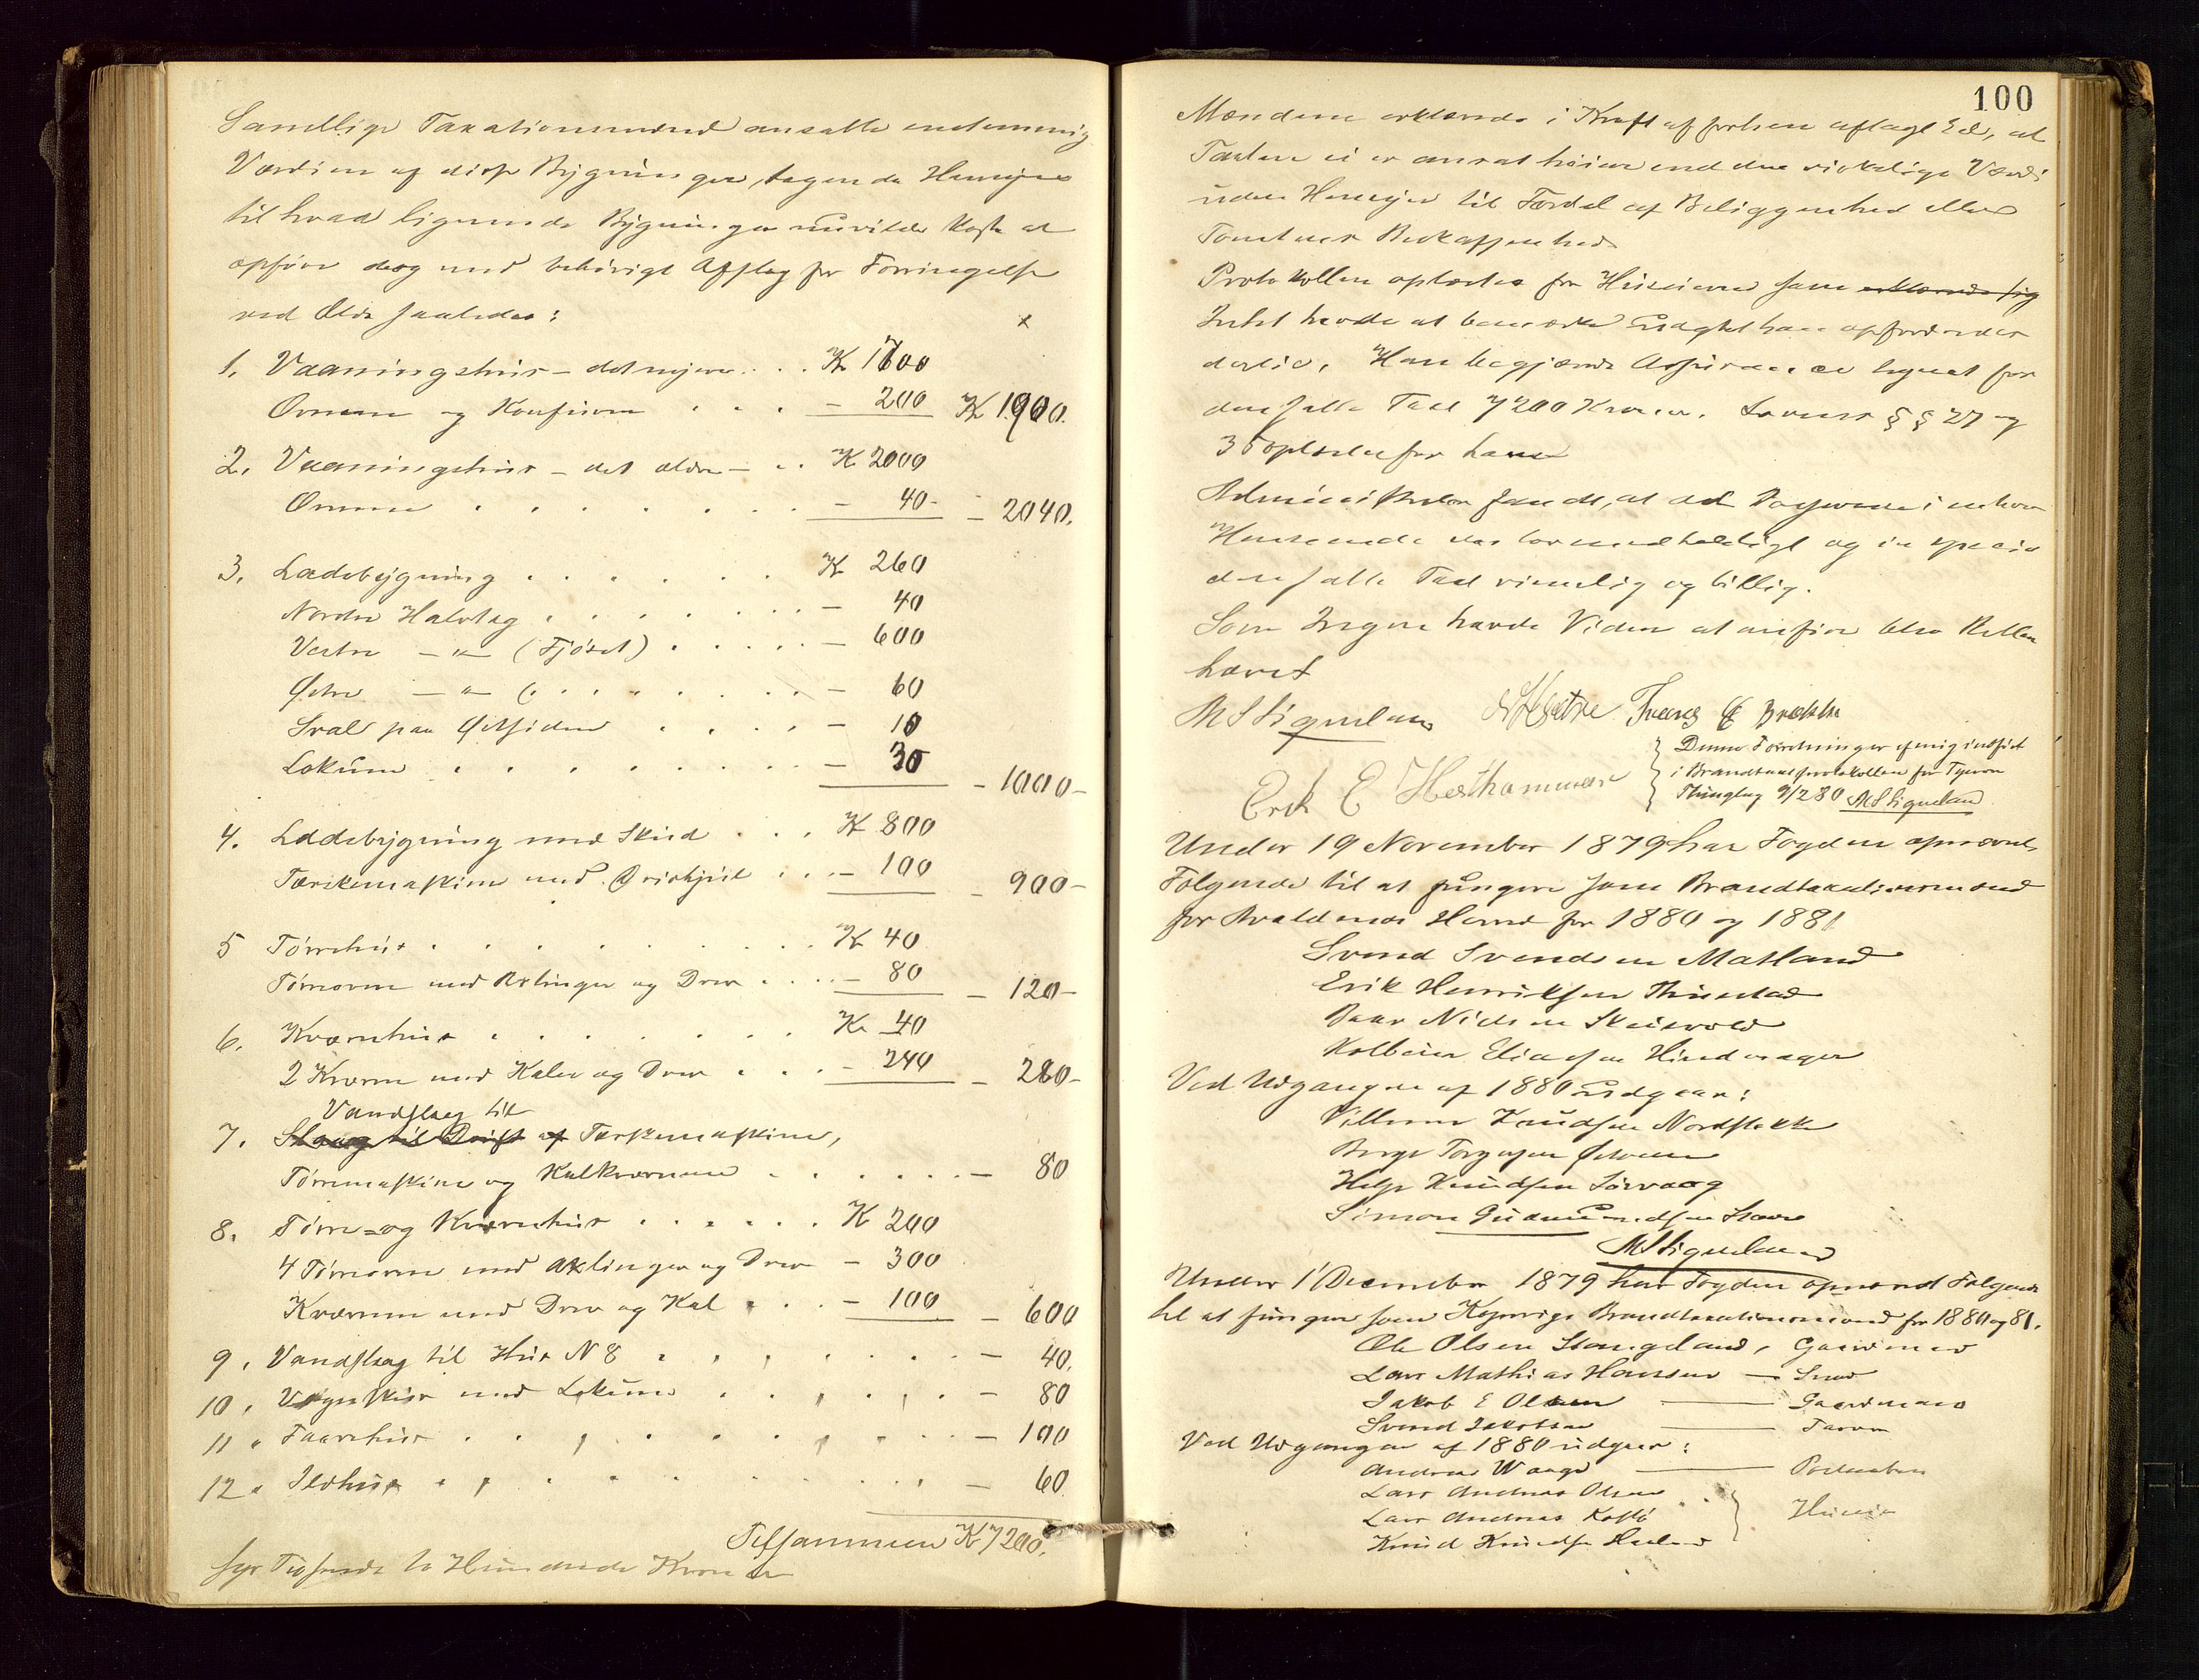 Samtlige Taxationsmænd ansatte enstemmig
Værdien af disse Bygninger, tagende Hensyn
til hvad lignende Bygninger nu vilde koste at
opføre dog med behørigt Afslag for Forringelse
ved Ælde saaledes:
1. Vaaningshus – det nyere . . . K 1700
Ovnene og Komfuren . . . – 200 K 1900.
2. Vaaningshus – det ældre – . . K 2000
Ovnene . . . . . . . – 40 – – 2040.
3. Ladebygning . . . . . . K 260
Nordre Halvtag . . . . . . . – 40
Vestre – " – (Fjøset) . . . . . – 600
Østre – " – ( . . . . . . . . – 60
Sval paa Østsiden . . . . – 10
Lokum . . . . . . . . – 30 – 1000 –
4. Ladebygning med Skud . . . K 800
Tærskemaskine med Drivhjul . . . – 100 – 900 –
5 Tørrehus . . . . . . . . . K 40
Tørreovn med Axlinger og Drev . . . . – 80 – 120 –
6. Kværnhus . . . . . . . K 40
2 Kværne med Kaler og Drev . . . – 240 – 280 –
Vandslag til
7. Slaag til Drift af Tærskemaskine,
Tørremaskine og Kalkværnene . . . . . . – 80
8. Tørre- og Kværnhus . . . . . . K 200
4 Tørreovne med Axlinger og Drev – 300
Kværnen med Drev og Kal . . . – 100 – 600
9. Vandslag til Hus N 8 . . . . . . . – 40.
10. Vognskur med Lokum . . . . . . – 80
11. Faarehus . . . . . . . . . – 100
12. Ildhus . . . . . . . . . – 60
Tilsammen K 7200.
syv Tusende to Hundrede Kroner
100
Mændene erklærede i Kraft af forhen aflagt Ed, at
Taxten ei er ansat høiere end den virkelige Værdi
uden Hensyn til Fordel af Beliggenhed eller
Tomtens Beskaffenhed
Protokollen oplæstes for Huseieren som erklærede sig
Intet havde at bemærke uagtet han opfordredes
dertil. Han begjærede Assurance tegnet for
den fulde Taxt 7200 Kroner. Lovens §§ 27 og
35 oplæstes for ham
Administrator fandt, at ad Besværne i enhver
Henseende var lovmedholdigt og in specie
den satte Taxt rimelig og billig.
Som Ingen havde Viden at anføre blev Retten
hævet
M S Siqueland Tværs E Brække
Erik E Hesthammer
Denne Forretning er af mig indført
i Brandtaxtprotokollen for Tysvær
Thinglag 9/2 80 M S Siqueland
Under 19 November 1879 har Fogden opnævnt
Følgende til at fungere som Brandtaxationsmænd
for Avaldsnes Herred for 1880 og 1881
Svend Svendsen Matland
Erik Henriksen Thuestad
Peder Nielsen Skeisvold
Kolbein Eliassen Hinderager
Ved Udgangen af 1880 Udgaar:
Villum Knudsen Nordstokke
Børge Torgersen Østrem
Helge Knudsen Sørvaag
Simon Gudmundsen Stavn
M S Siqueland
Under 1 December 1879 har Fogden opnævnt Følgende
til at fungere som Kopervigs Brandtaxationsmænd for 1880 og 81.
Ole Olsen Stangeland, Gaardmand
Lars Mathias Hansen – Smed
Jakob E Olsen – Gaardmand
Svend Jakobsen – Farver
Ved Udgangen af 1880 udgaar:
Andreas Waage – Postaaben
Lars Andreas Olsen
Lars Andreas Kolstø } Huseier
Knud Knudsen Haaland